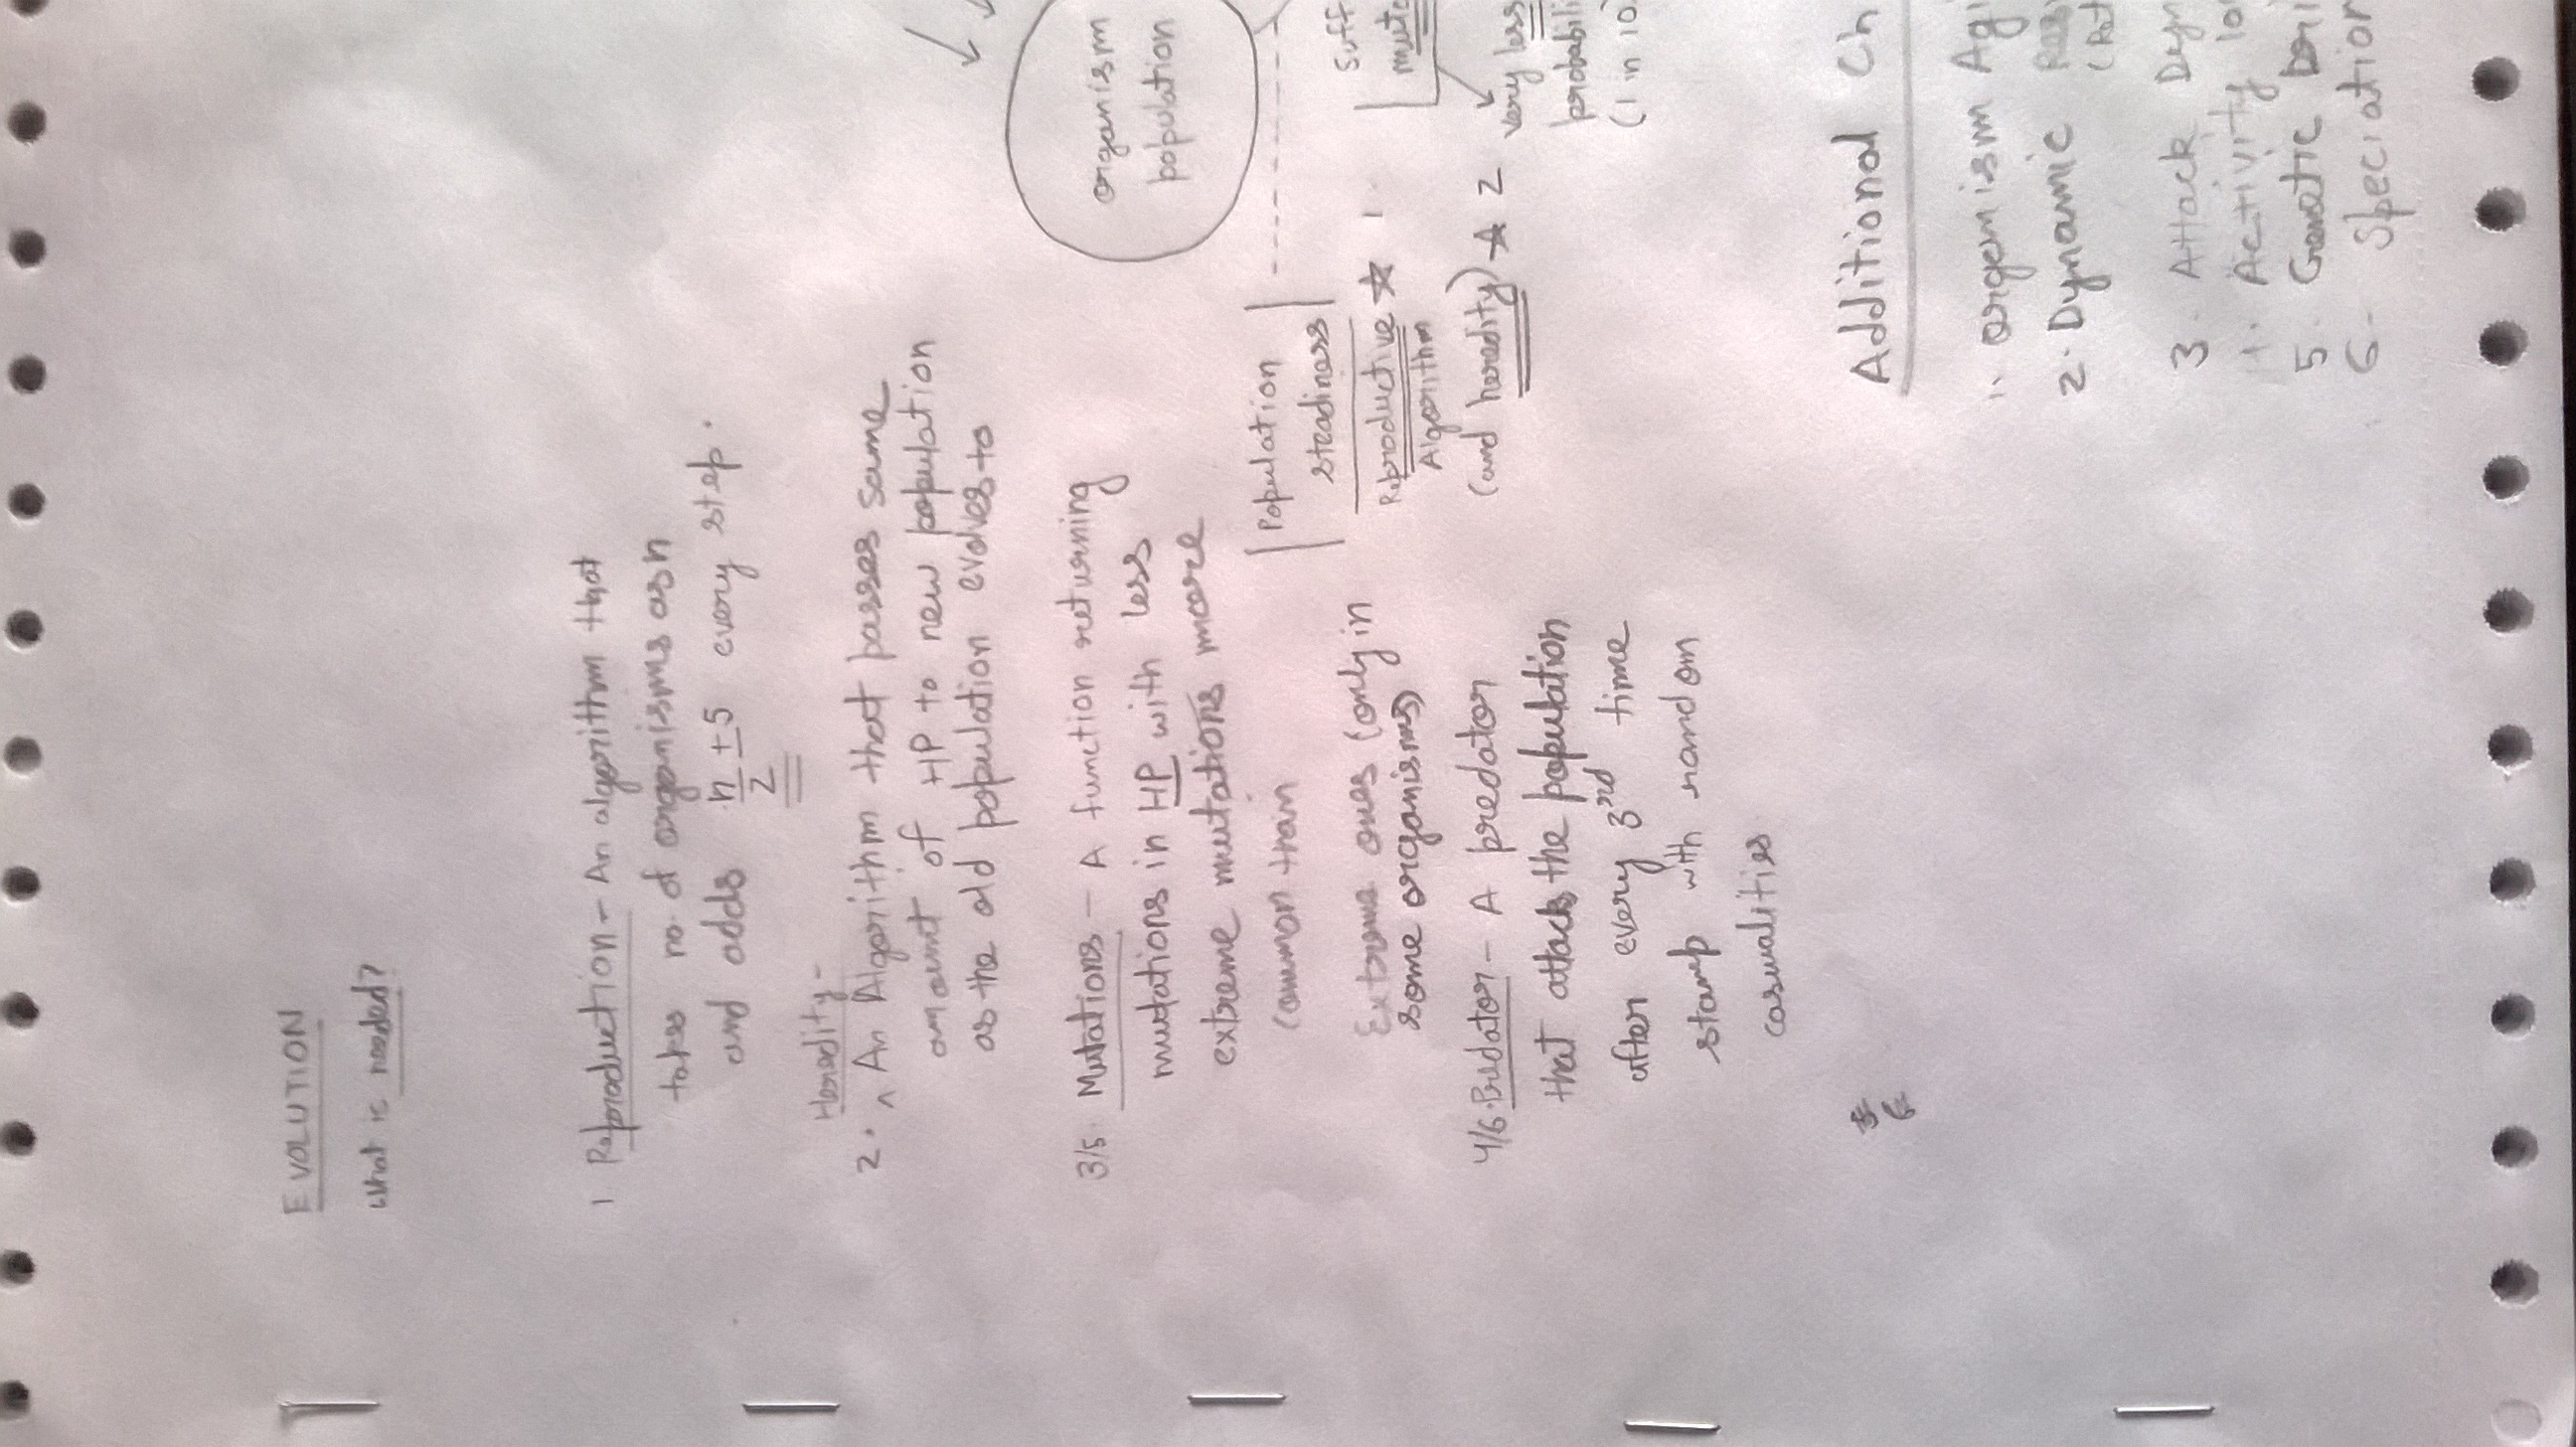 EVOLUTION
What is needed?
1 Reproduction - An algorithm that
takes no. of organisms as n
and adds n/2 ± 5 every step.
Heredity -
2. ^ An Algorithm that passes same
amount of HP to new population
as the old population evolves to
3/5. Mutations - A function returning
mutations in HP with less
extreme mutations more
common than
Extreme ones (only in
some organisms)
4/6. Predator - A predator
that attacks the population
after every 3rd time
stamp with random
casualities
organism
population
Population
steadiness
Reproductive ☆ 1.
Algorithm
(and heredity) ☆ 2
Suff
mutat
very less
probabili
(1 in 10
Additional Ch
1. organism Ag
2. Dynamic
3. Attack Dyn
4. Activity lo
5. Genetic Dri
6 - Speciation